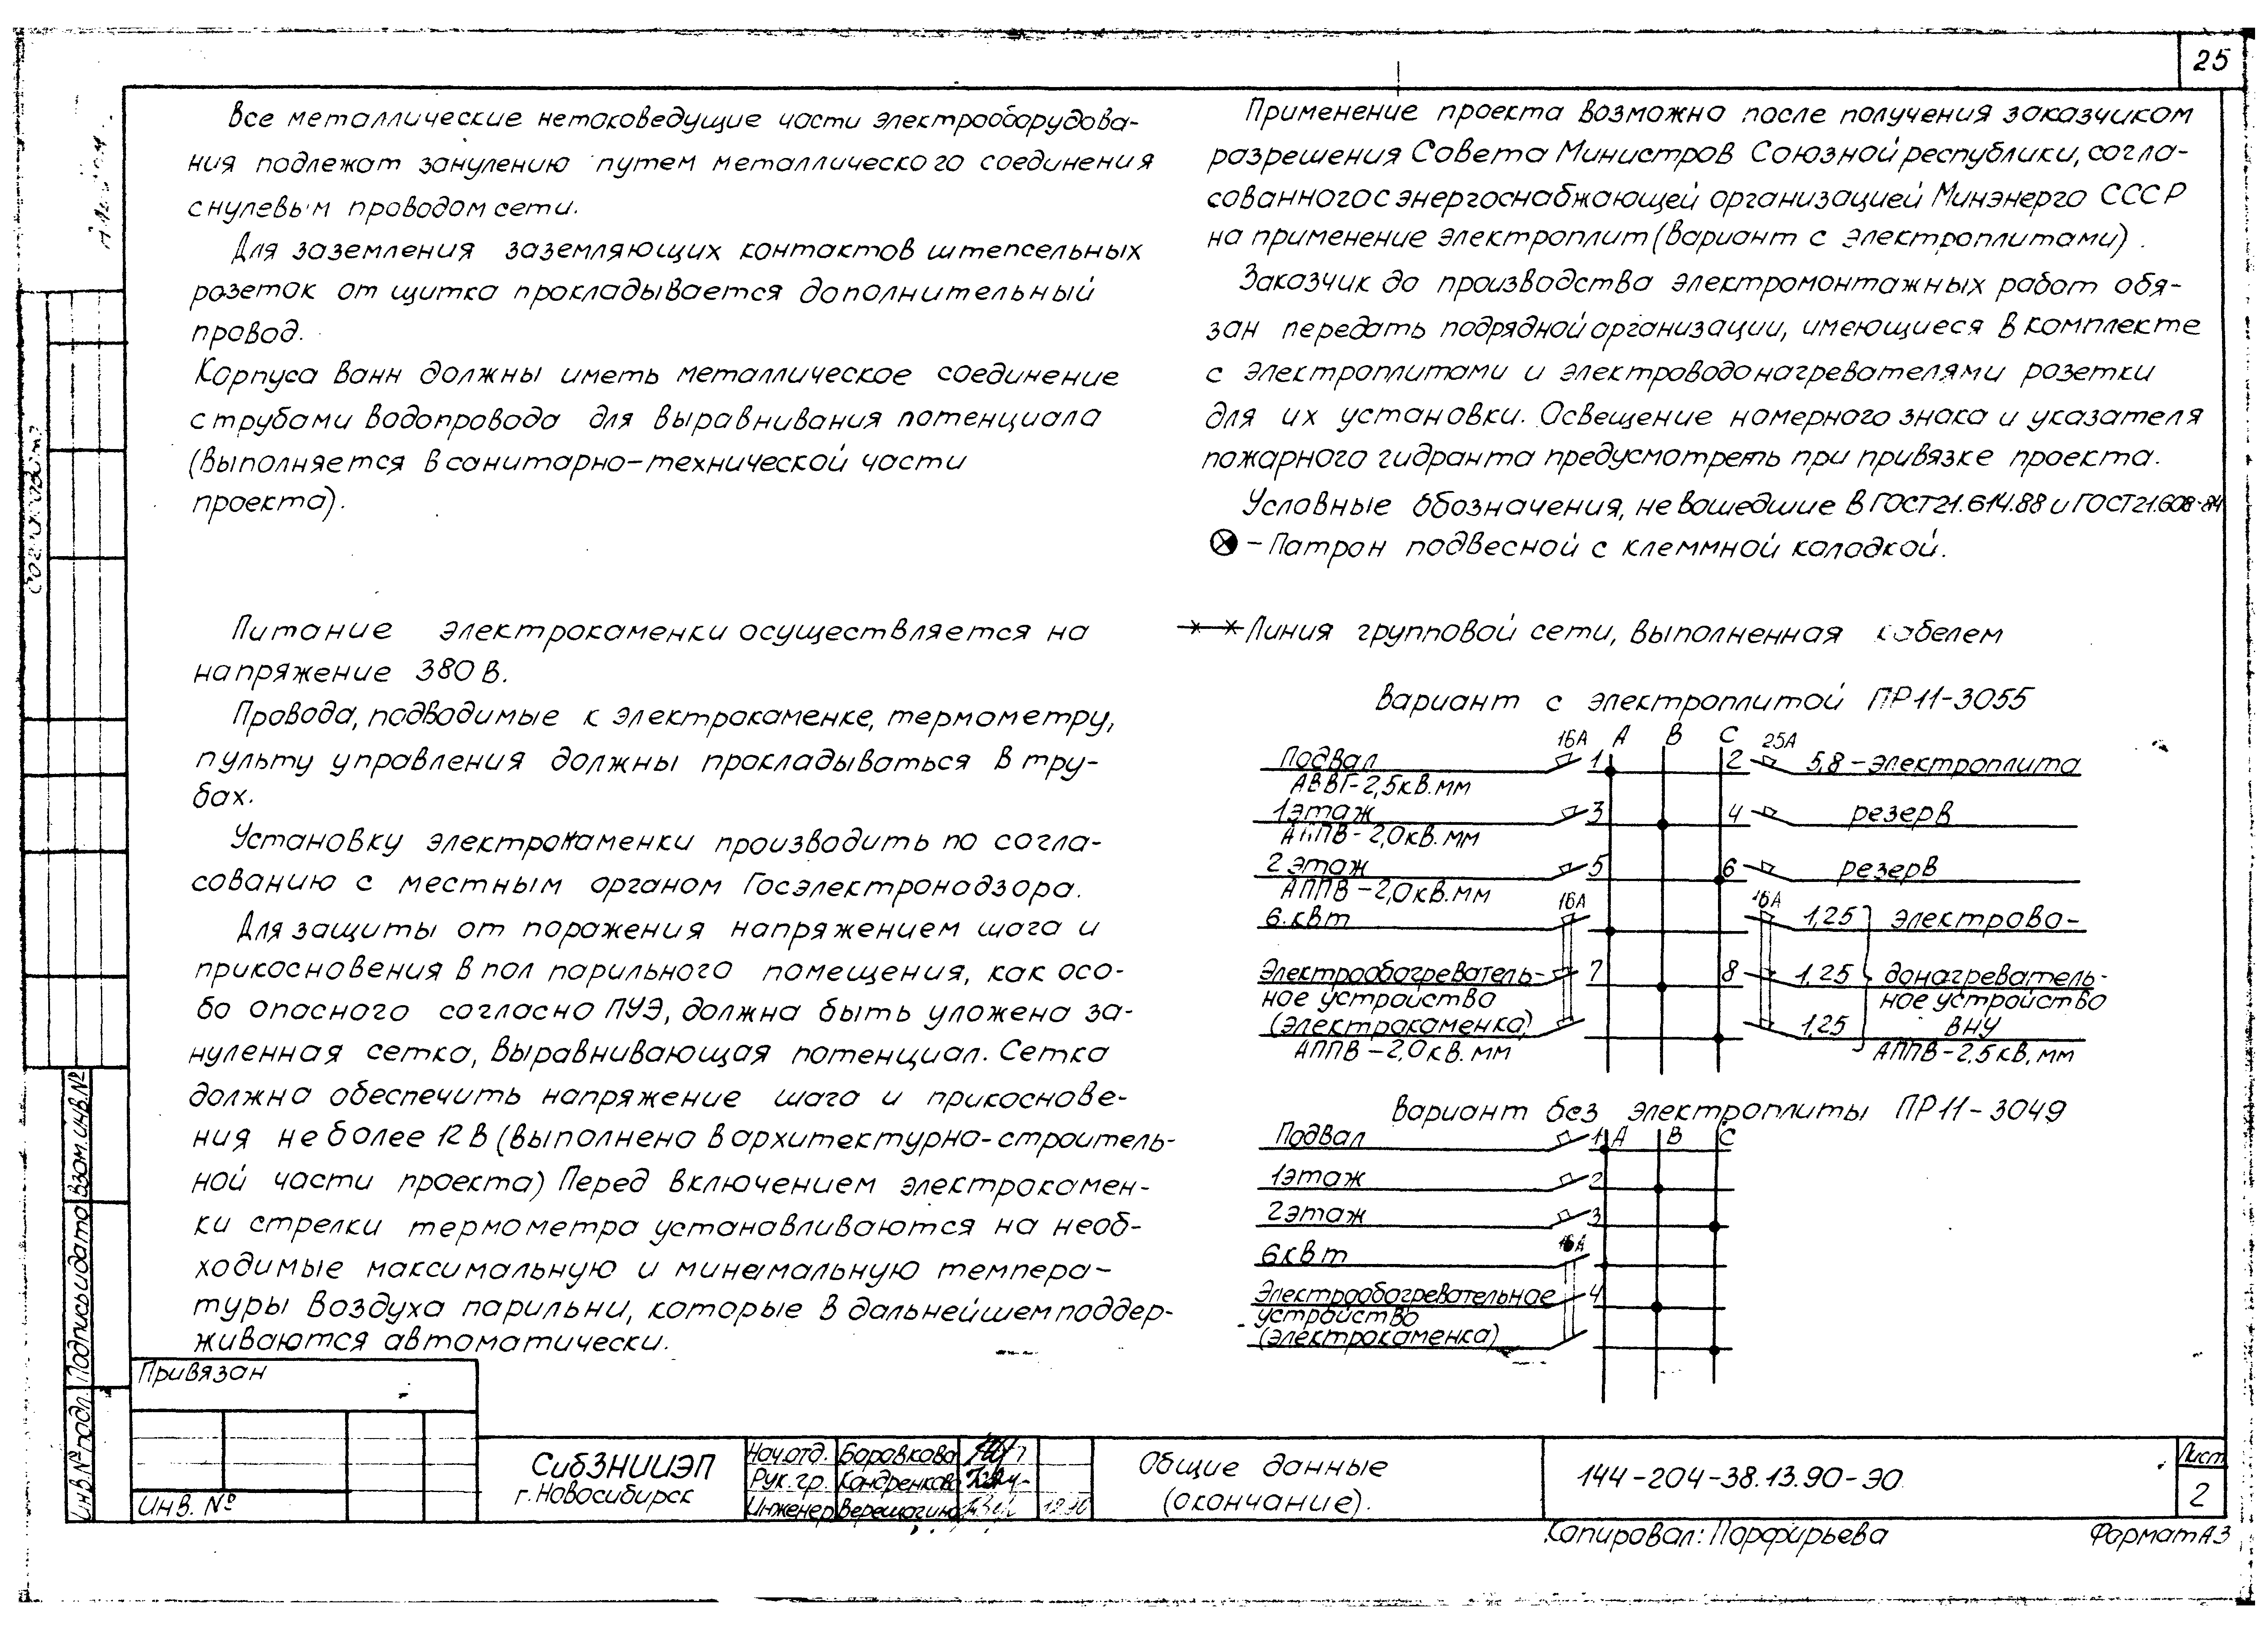 25
Все металлические нетоковедущие части электрооборудова-
ния подлежат занулению путем металлического соединения
с нулевым проводом сети.
Для заземления заземляющих контактов штепсельных
розеток от щитка прокладывается дополнительный
провод.
Корпуса ванн должны иметь металлическое соединение
с трубами водопровода для выравнивания потенциала
(выполняется в санитарно-технической части
проекта).
Питание электрокаменки осуществляется на
напряжение 380 В.
Провода, подводимые к электрокаменке, термометру,
пульту управления должны прокладываться в тру-
бах.
Установку электрокаменки производить по согла-
сованию с местным органом Госэлектронадзора.
Для защиты от поражения напряжением шага и
прикосновения в пол парильного помещения, как осо-
бо опасного согласно ПУЭ, должна быть уложена за-
нуленная сетка, выравнивающая потенциал. Сетка
должна обеспечить напряжение шага и прикоснове-
ния не более 12 В (выполнена в архитектурно-строитель-
ной части проекта) Перед включением электрокамен-
ки стрелки термометра устанавливаются на необ-
ходимые максимальную и минимальную темпера-
туры воздуха парильни, которые в дальнейшем поддер-
живаются автоматически.
Применение проекта возможно после получения заказчиком
разрешения Совета Министров Союзной республики, согла-
сованного с энергоснабжающей организацией Минэнерго СССР
на применение электроплит (вариант с электроплитами).
Заказчик до производства электромонтажных работ обя-
зан передать подрядной организации, имеющиеся в комплекте
с электроплитами и электроводонагревателями розетки
для их установки. Освещение номерного знака и указателя
пожарного гидранта предусмотреть при привязке проекта.
Условные обозначения, не вошедшие в ГОСТ 21.614.88 и ГОСТ 21.608-84
– Патрон подвесной с клеммной колодкой.
Линия групповой сети, выполненная кабелем
Вариант с электроплитой ПР11-3055
16А А В С 25А
Подвал 1 2 5,8 – электроплита
АВВГ-2,5 кв. мм
1 этаж 3 4 резерв
АППВ - 2,0 кв. мм
2 этаж 5 6 резерв
АППВ – 2,0 кв. мм 16А 16А
6. квт 1,25 электрово-
Электрообогреватель- 7 8 1,25 донагреватель-
ное устройство ное устройство
(электрокаменка) 1,25 ВНУ
АППВ – 2,0 кв. мм АППВ – 2,5 кв, мм
Вариант без электроплиты ПР11-3049
Подвал 1 А В С
1 этаж 2
2 этаж 3
16А
6 квт
Электрообогревательное 4
устройство
(электрокаменка)
Согласовано
Взам. инв. №
Подпись и дата
Инв. № подл.
Привязан
Инв. №
СибЗНИИЭП
г. Новосибирск
Нач. отд. Боровкова
Рук. гр. Кондренкова
Инженер Верещагина 12.90
Общие данные
(окончание).
144-204-38.13.90-ЭО
Лист
2
Копировал: Порфирьева
Формат А3